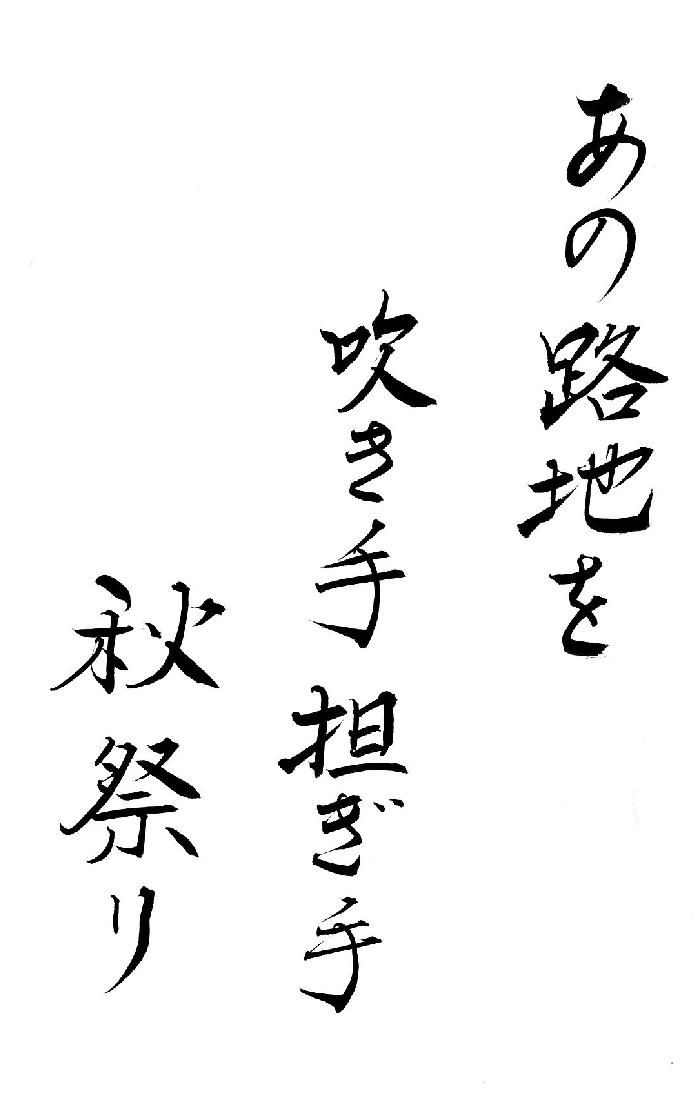 あの路地を
吹き手担ぎ手
秋祭り